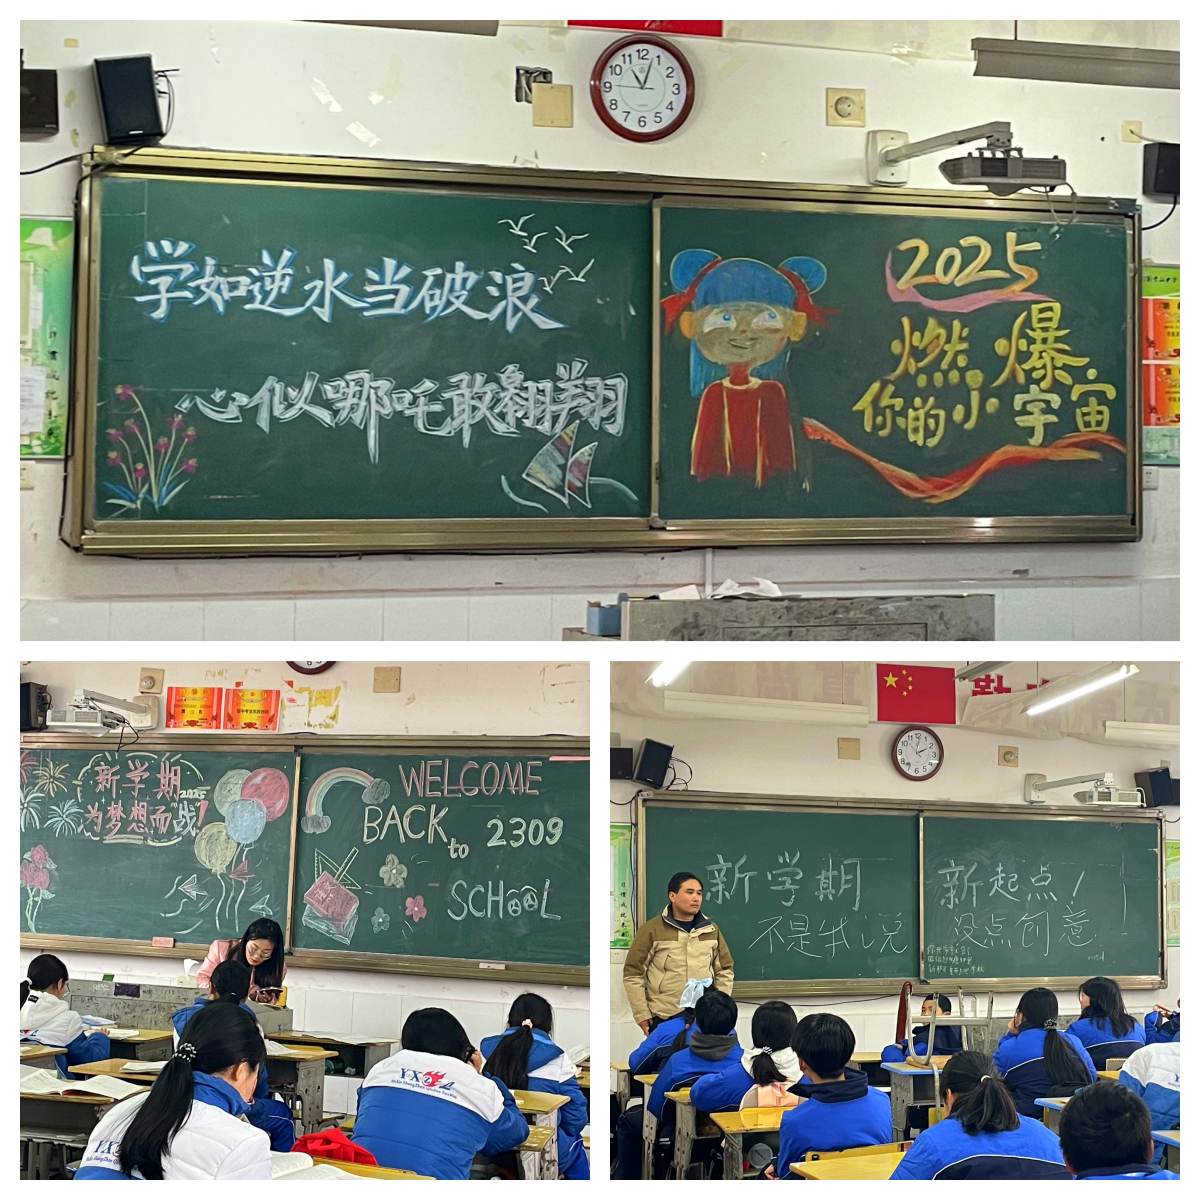 学如逆水当破浪
心似哪吒敢翱翔
2025
燃爆
你的小宇宙
新学期
2025
为梦想而"战"!
WELCOME
BACK
to 2309
SCHOOL
YX
新学期
不是牛说
新起点!
没点创意